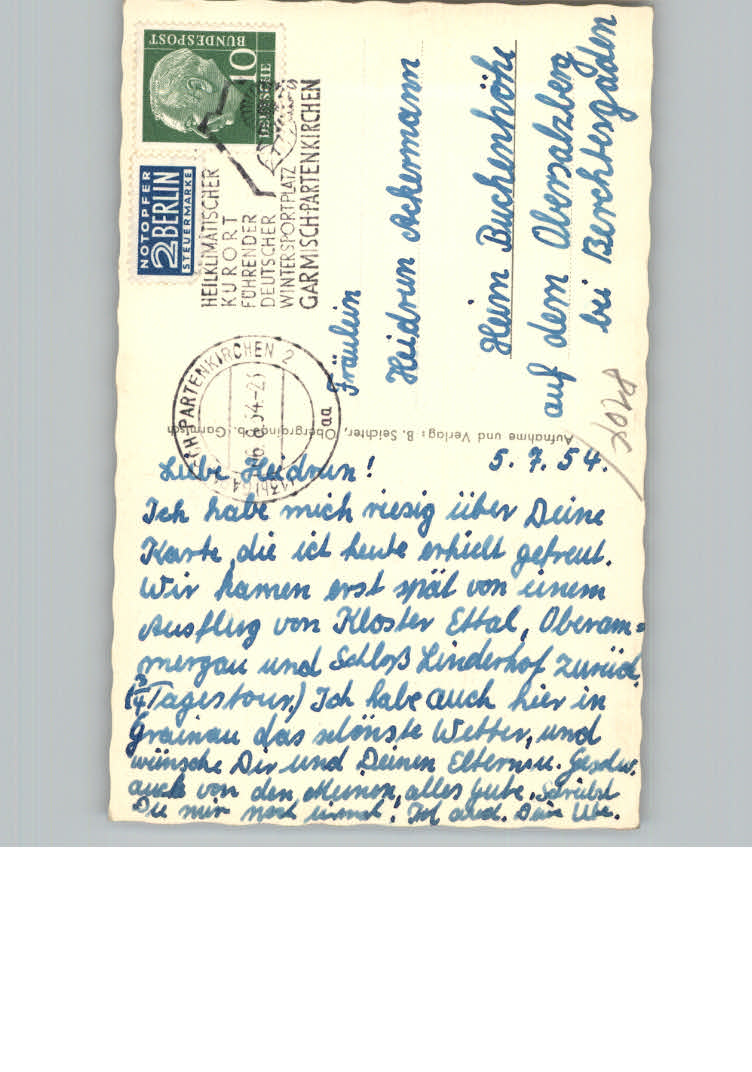 DEUTSCHE
BUNDESPOST
10
NOTOPFER
2 BERLIN
STEUERMARKE
HEILKLIMATISCHER
KURORT
FÜHRENDER
DEUTSCHER
WINTERSPORTPLATZ
GARMISCH-PARTENKIRCHEN
CH-PARTENKIRCHEN 2
aa
Fräulein
Heidrun Ackermann
Heim Buchenhöhe
auf dem Obersalzberg
bei Berchtesgaden
Aufnahme und Verlag: B. Seichter, Obergrainau b. Garmisch
5. 7. 54.
Liebe Heidrun!
Ich habe mich riesig über Deine
Karte, die ich heute erhielt gefreut.
Wir kamen erst spät von einem
Ausflug von Kloster Ettal, Oberam=
mergau und Schloß Linderhof zurück.
(¾ Tagestour.) Ich habe auch hier in
Grainau das schönste Wetter, und
wünsche Dir und Deinen Eltern u. Geschw.
auch von den Meinen, alles Gute. Schreibst
Du mir noch einmal? Deine Ute.